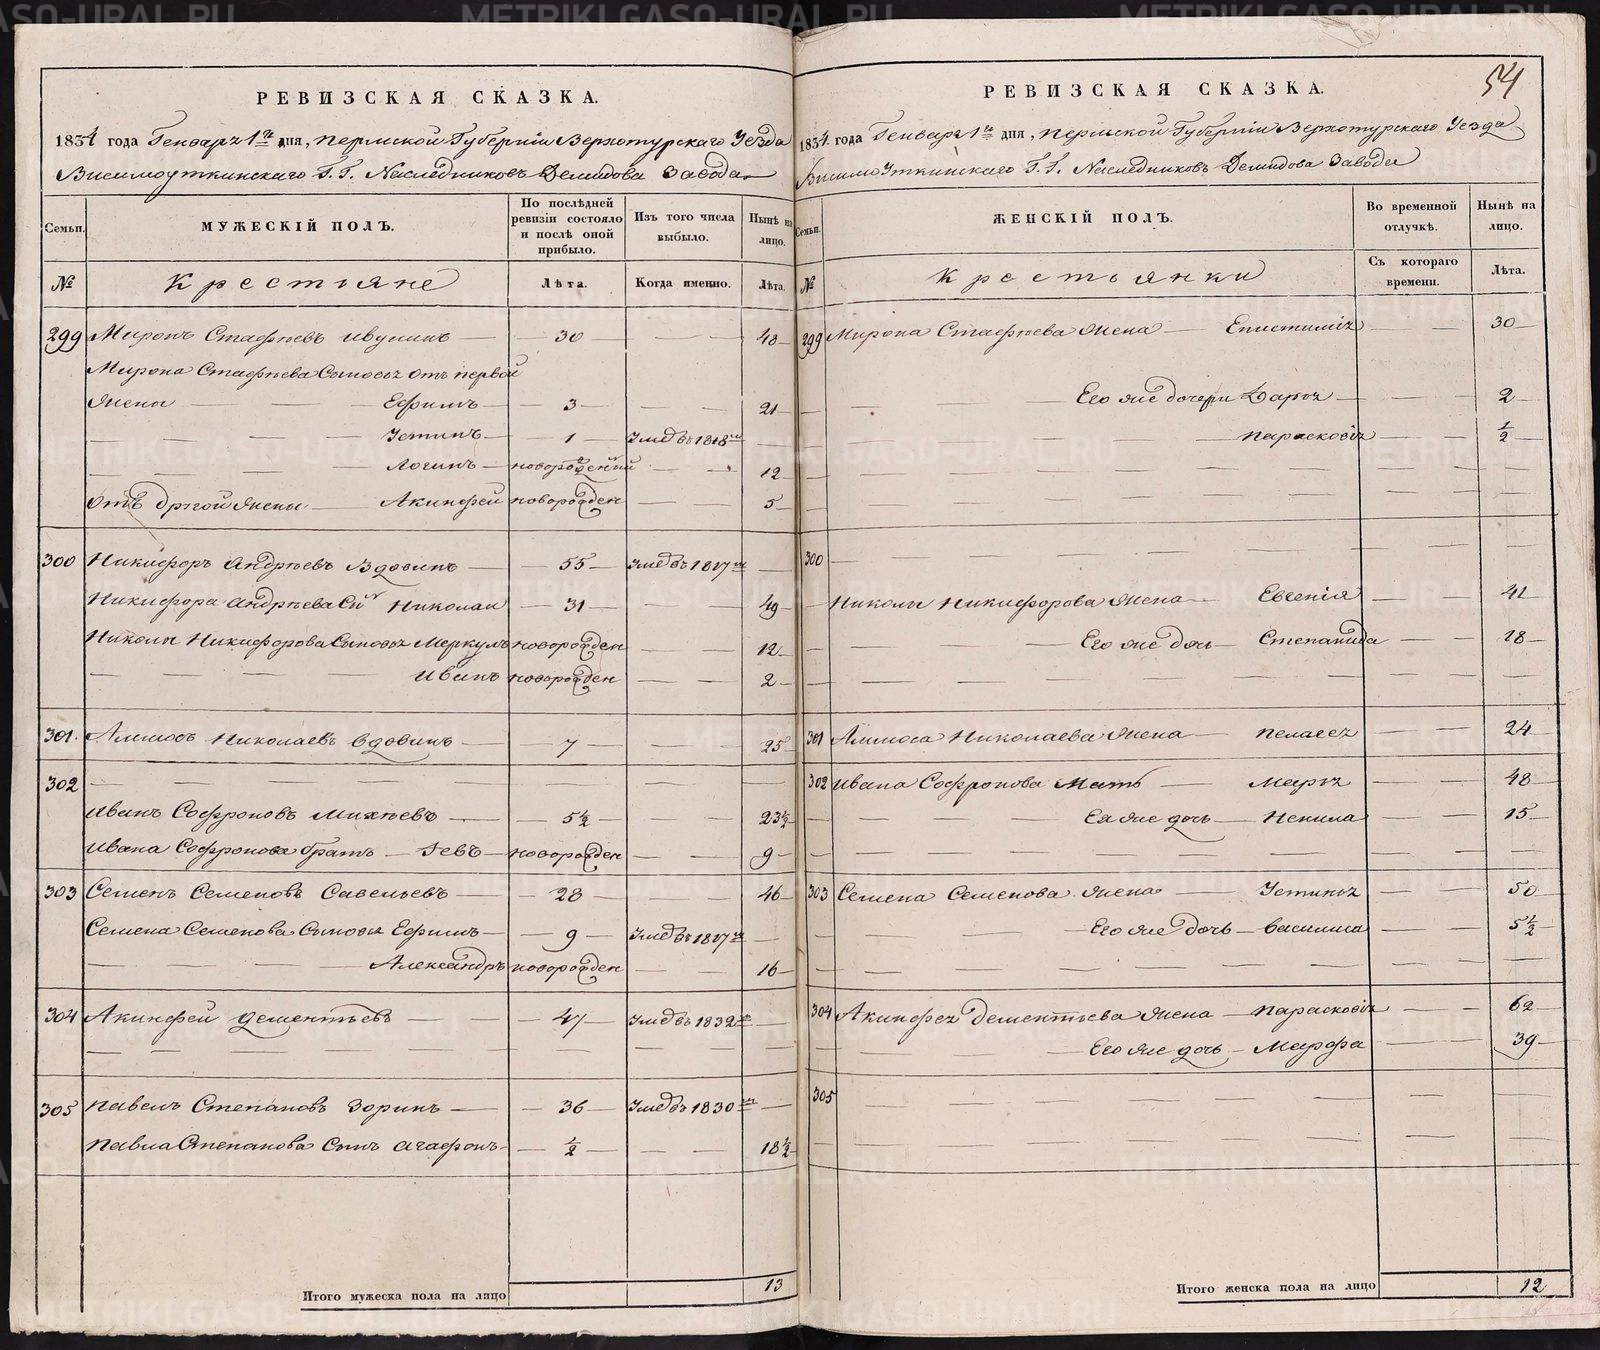 54
РЕВИЗСКАЯ СКАЗКА.
1834 года Генваря 1го дня, Пермской Губерніи Верхотурскаго Уезда
Висимоуткинскаго Г.Г. Наследниковъ Демидова Завода
Семьи.
МУЖЕСКІЙ ПОЛЪ.
По послѣдней ревизіи состояло и послѣ оной прибыло.
Изъ того числа выбыло.
Нынѣ на лицо.
№
Крестіяне
Лѣта.
Когда именно.
Лѣта.
299 Миронъ Стафѣевъ Ивунинъ 30 48
Мирона Стафѣева Сыновья отъ первой
жены Ефимъ 3 21
Устинъ 1 Умеръ въ 1818м
Логинъ новорожденный 12
Отъ другой жены Акинфей новорожден 5
300 Никифоръ Андрѣевъ Вдовинъ 55 Умеръ 1817м
Никифора Андрѣева Сын Николай 31 49
Николы Никифорова Сыновья Меркулъ новорожден 12
Иванъ новорожден 2
301. Аммосъ Николаевъ Вдовинъ 7 25
302
Иванъ Софроновъ Михѣевъ 5 1/2 23 1/2
Ивана Софронова братъ Левъ новорожден 9
303 Семенъ Семеновъ Савельевъ 28 46
Семена Семенова Сыновья Ефимъ 9 Умеръ въ 1817м
Александръ новорожден 16
304 Акинфей Дементьевъ 47 Умеръ въ 1832м
305 Павелъ Степановъ Зоринъ 36 Умеръ въ 1830м
Павла Степанова Сынъ Агафонъ 1/2 18 1/2
Итого мужеска пола на лицо 13
РЕВИЗСКАЯ СКАЗКА.
1834 года Генваря 1го дня, Пермской Губерніи Верхотурскаго Уезда
Висимо Уткинскаго Г.Г. Наследниковъ Демидова Завода
Семьи.
ЖЕНСКІЙ ПОЛЪ.
Во временной отлучкѣ.
Нынѣ на лицо.
№
Крестьянки
Съ котораго времени.
Лѣта.
299 Мирона Стафѣева Жена Епистимія 30
Его же дочери Дарья 2
Парасковія 1/2
300
Николы Никифорова Жена Евгенія 41
Его же дочь Степанида 18
301 Аммоса Николаева Жена Пелагея 24
302 Ивана Софронова Мать Марья 48
Ея же дочь Ненила 15
303 Семена Семенова Жена Устинья 50
Его же дочь Василиса 5 1/2
304 Акинфея Дементьева Жена Парасковія 62
Его же дочь Марфа 39
305
Итого женска пола на лицо 12
METRIKI.GASO-URAL.RU